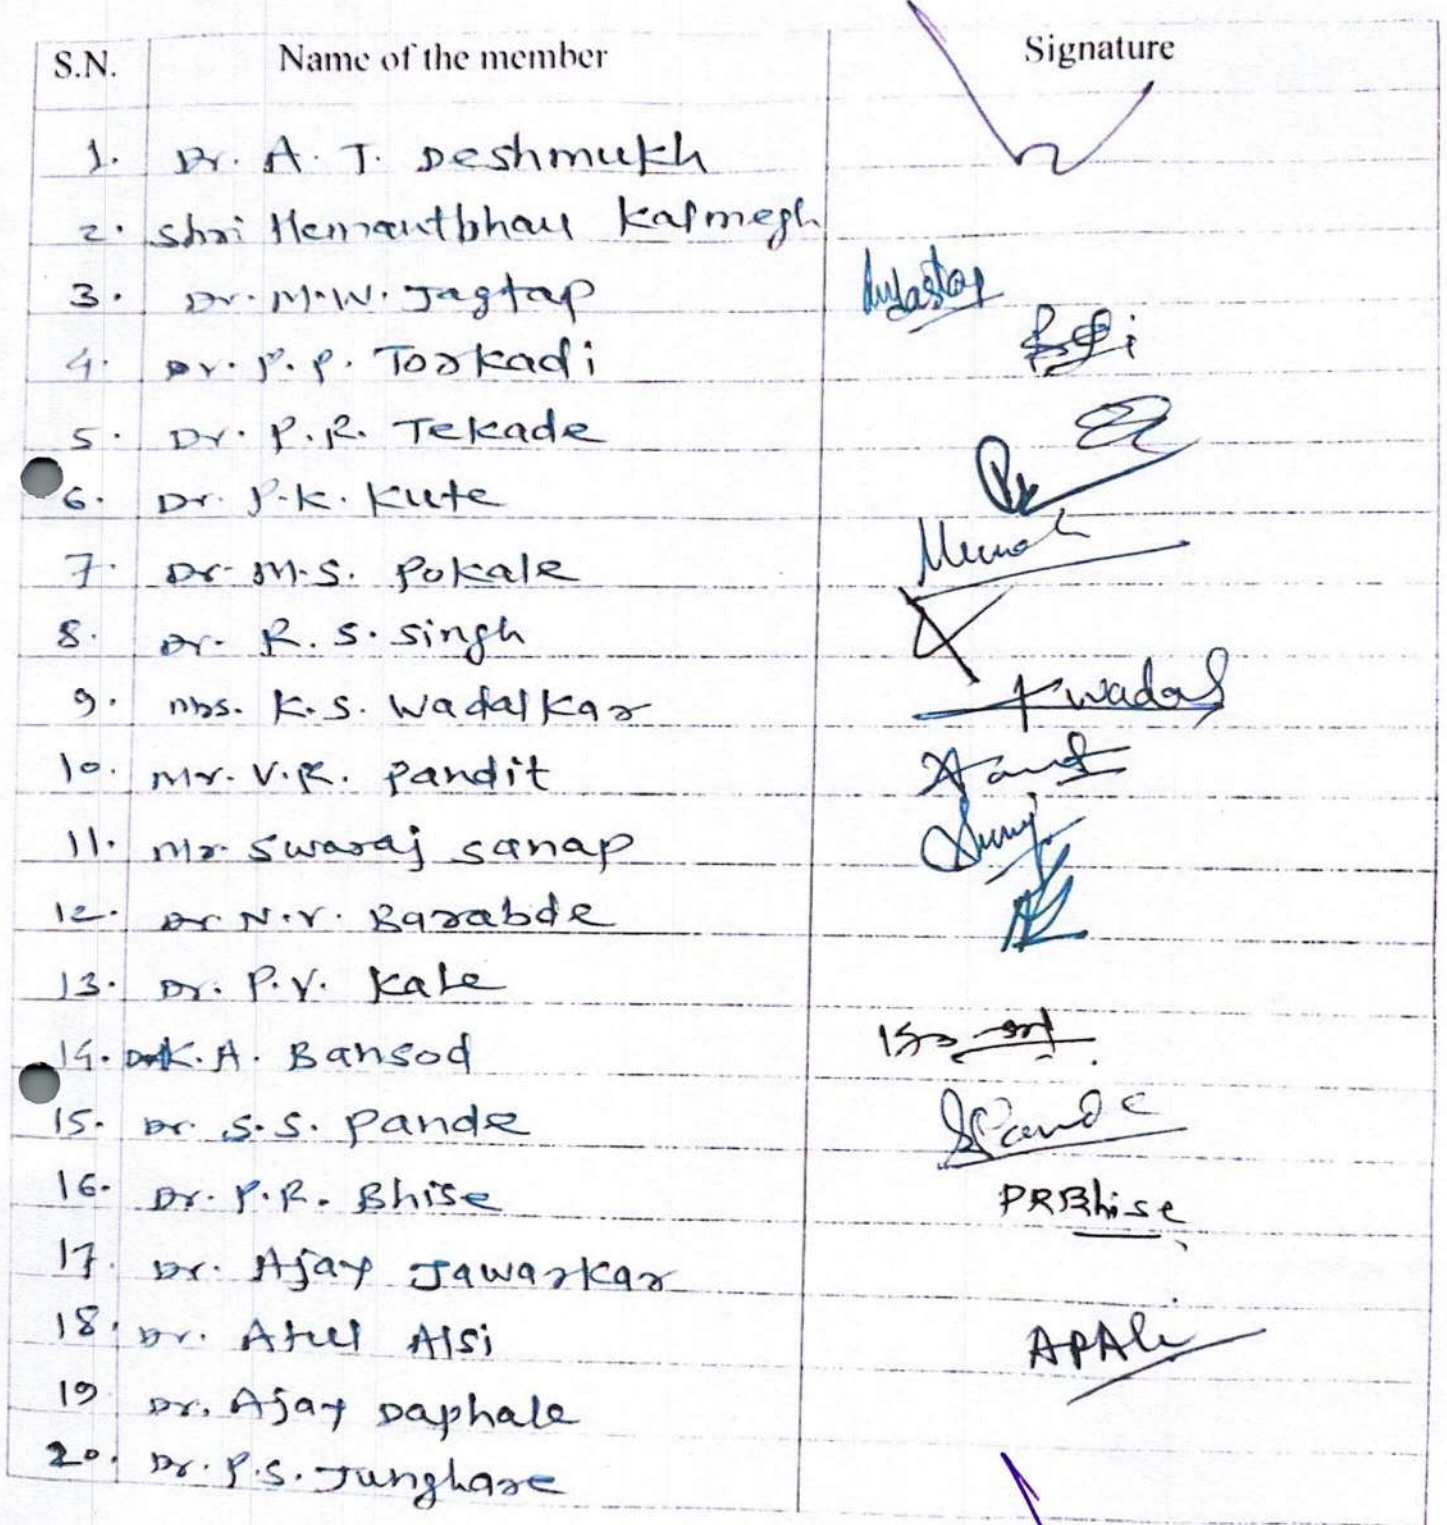 S.N. Name of the member Signature
1. Dr. A. T. Deshmukh
2. Shri Hemantbhau Kalmegh
3. Dr. M.W. Jagtap
4. Dr. P.P. Torkadi
5. Dr. P.R. Tekade
6. Dr. P.K. Kute
7. Dr. M.S. Pokale
8. Dr. R.S. Singh
9. Mrs. K.S. Wadalkar Kwadal
10. Mr. V.R. Pandit
11. Mr. Swaraj Sanap
12. Dr. N.V. Barabde
13. Dr. P.V. Kale
14. Dr. K.A. Bansod
15. Dr. S.S. Pande SPande
16. Dr. P.R. Bhise PRBhise
17. Dr. Ajay Jawarkar
18. Dr. Atul Alsi
19 Dr. Ajay Daphale
20. Dr. P.S. Junghare